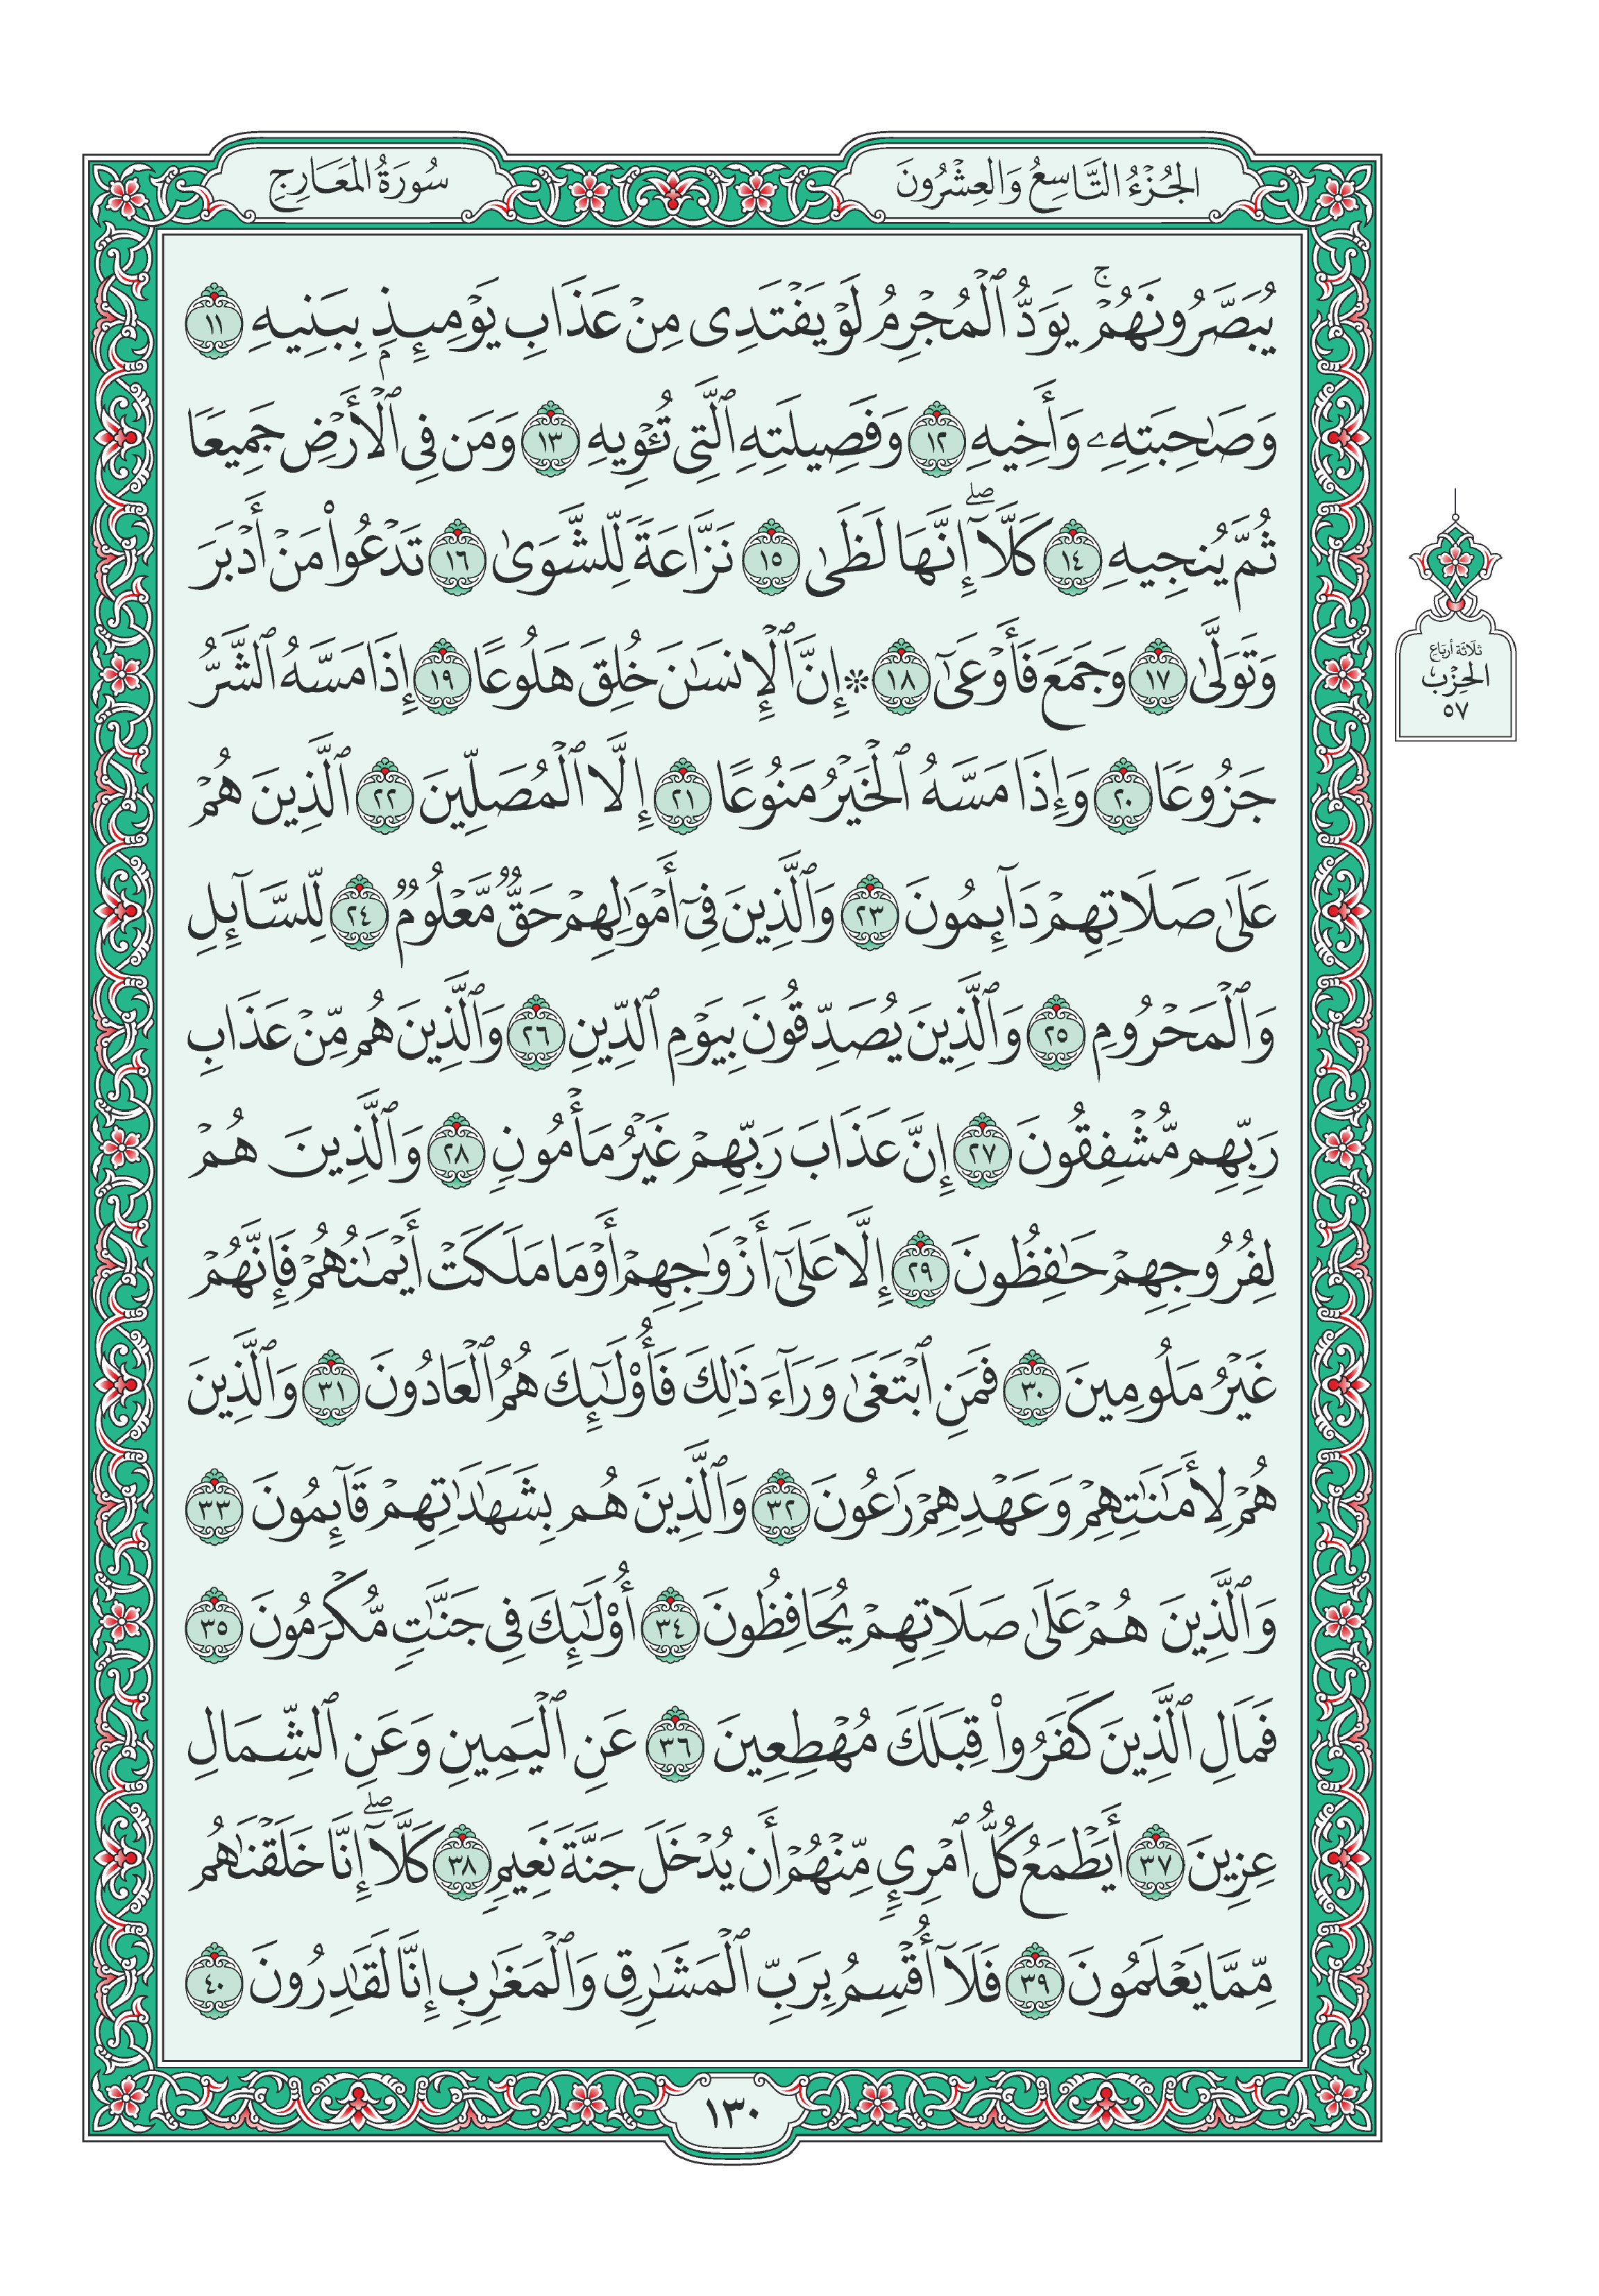 الجُزْءُ التَّاسِعُ وَالعِشْرُونَ
سُورَةُ المَعَارِجِ
يُبَصَّرُونَهُمْۚ يَوَدُّ ٱلْمُجْرِمُ لَوْ يَفْتَدِى مِنْ عَذَابِ يَوْمِئِذِۭ بِبَنِيهِ ١١
وَصَٰحِبَتِهِۦ وَأَخِيهِ ١٢ وَفَصِيلَتِهِ ٱلَّتِى تُـْٔوِيهِ ١٣ وَمَن فِى ٱلْأَرْضِ جَمِيعًا
ثُمَّ يُنجِيهِ ١٤ كَلَّآۖ إِنَّهَا لَظَىٰ ١٥ نَزَّاعَةً لِّلشَّوَىٰ ١٦ تَدْعُوا۟ مَنْ أَدْبَرَ
وَتَوَلَّىٰ ١٧ وَجَمَعَ فَأَوْعَىٰٓ ١٨ ۞ إِنَّ ٱلْإِنسَٰنَ خُلِقَ هَلُوعًا ١٩ إِذَا مَسَّهُ ٱلشَّرُّ
جَزُوعًا ٢٠ وَإِذَا مَسَّهُ ٱلْخَيْرُ مَنُوعًا ٢١ إِلَّا ٱلْمُصَلِّينَ ٢٢ ٱلَّذِينَ هُمْ
عَلَىٰ صَلَاتِهِمْ دَآئِمُونَ ٢٣ وَٱلَّذِينَ فِىٓ أَمْوَٰلِهِمْ حَقٌّ مَّعْلُومٌ ٢٤ لِّلسَّآئِلِ
وَٱلْمَحْرُومِ ٢٥ وَٱلَّذِينَ يُصَدِّقُونَ بِيَوْمِ ٱلدِّينِ ٢٦ وَٱلَّذِينَ هُم مِّنْ عَذَابِ
رَبِّهِم مُّشْفِقُونَ ٢٧ إِنَّ عَذَابَ رَبِّهِمْ غَيْرُ مَأْمُونٍ ٢٨ وَٱلَّذِينَ هُمْ
لِفُرُوجِهِمْ حَٰفِظُونَ ٢٩ إِلَّا عَلَىٰٓ أَزْوَٰجِهِمْ أَوْ مَا مَلَكَتْ أَيْمَٰنُهُمْ فَإِنَّهُمْ
غَيْرُ مَلُومِينَ ٣٠ فَمَنِ ٱبْتَغَىٰ وَرَآءَ ذَٰلِكَ فَأُو۟لَٰٓئِكَ هُمُ ٱلْعَادُونَ ٣١ وَٱلَّذِينَ
هُمْ لِأَمَٰنَٰتِهِمْ وَعَهْدِهِمْ رَٰعُونَ ٣٢ وَٱلَّذِينَ هُم بِشَهَٰدَٰتِهِمْ قَآئِمُونَ ٣٣
وَٱلَّذِينَ هُمْ عَلَىٰ صَلَاتِهِمْ يُحَافِظُونَ ٣٤ أُو۟لَٰٓئِكَ فِى جَنَّٰتٍ مُّكْرَمُونَ ٣٥
فَمَالِ ٱلَّذِينَ كَفَرُوا۟ قِبَلَكَ مُهْطِعِينَ ٣٦ عَنِ ٱلْيَمِينِ وَعَنِ ٱلشِّمَالِ
عِزِينَ ٣٧ أَيَطْمَعُ كُلُّ ٱمْرِئٍ مِّنْهُمْ أَن يُدْخَلَ جَنَّةَ نَعِيمٍ ٣٨ كَلَّآۖ إِنَّا خَلَقْنَٰهُم
مِّمَّا يَعْلَمُونَ ٣٩ فَلَآ أُقْسِمُ بِرَبِّ ٱلْمَشَٰرِقِ وَٱلْمَغَٰرِبِ إِنَّا لَقَٰدِرُونَ ٤٠
ثلاثة أرباع
الحِزْب
٥٧
١٣٠